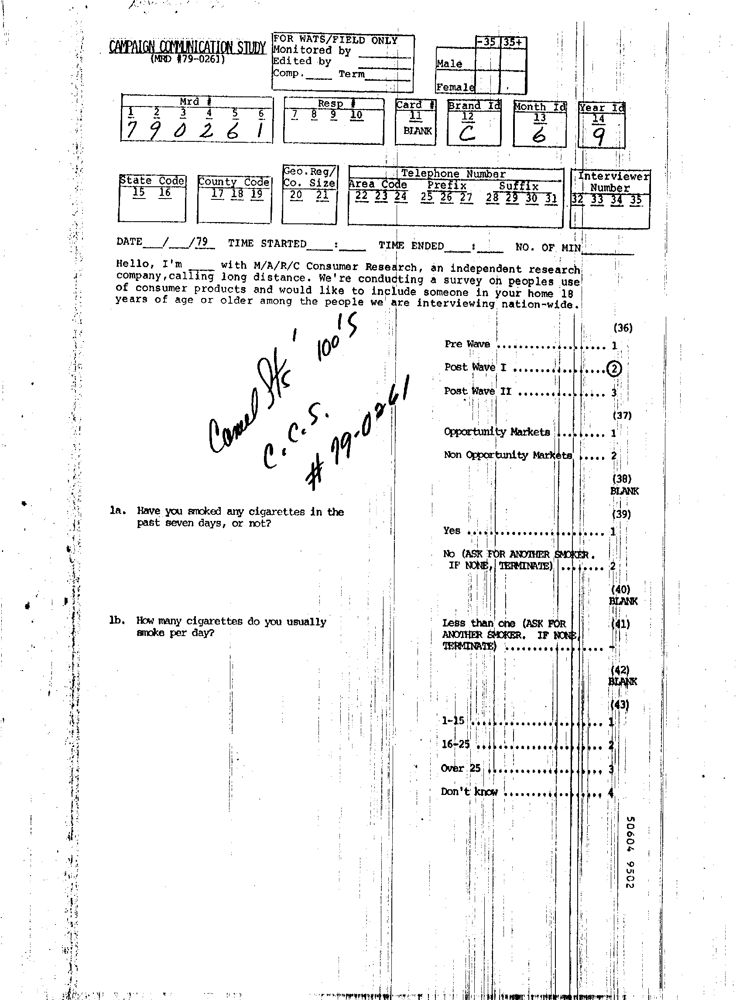 CAMPAIGN COMMUNICATION STUDY
(MRD #79-0261)
FOR WATS/FIELD ONLY
Monitored by ________
Edited by ________
Comp. ____ Term ______
-35 35+
Male
Female
Mrd #
1 2 3 4 5 6
7 9 0 2 6 1
Resp #
7 8 9 10
Card #
11
BLANK
Brand Id
12
C
Month Id
13
6
Year Id
14
9
State Code
15 16
County Code
17 18 19
Geo.Reg/
Co. Size
20 21
Telephone Number
Area Code Prefix Suffix
22 23 24 25 26 27 28 29 30 31
Interviewer
Number
32 33 34 35
DATE___/___/79 TIME STARTED____:____ TIME ENDED____:____ NO. OF MIN________
Hello, I'm ____ with M/A/R/C Consumer Research, an independent research
company, calling long distance. We're conducting a survey on peoples use
of consumer products and would like to include someone in your home 18
years of age or older among the people we are interviewing nation-wide.
Camel Lts' 100's
C.C.S.
# 79-0261
(36)
Pre Wave .................. 1
Post Wave I ................ 2
Post Wave II ............... 3
(37)
Opportunity Markets ........ 1
Non Opportunity Markets ..... 2
(38)
BLANK
1a. Have you smoked any cigarettes in the
past seven days, or not?
(39)
Yes ....................... 1
No (ASK FOR ANOTHER SMOKER.
IF NONE, TERMINATE) ....... 2
(40)
BLANK
1b. How many cigarettes do you usually
smoke per day?
Less than one (ASK FOR
ANOTHER SMOKER. IF NONE,
TERMINATE) ................ -
(41)
(42)
BLANK
(43)
1-15 ...................... 1
16-25 ..................... 2
Over 25 ................... 3
Don't know ................ 4
50604 9502